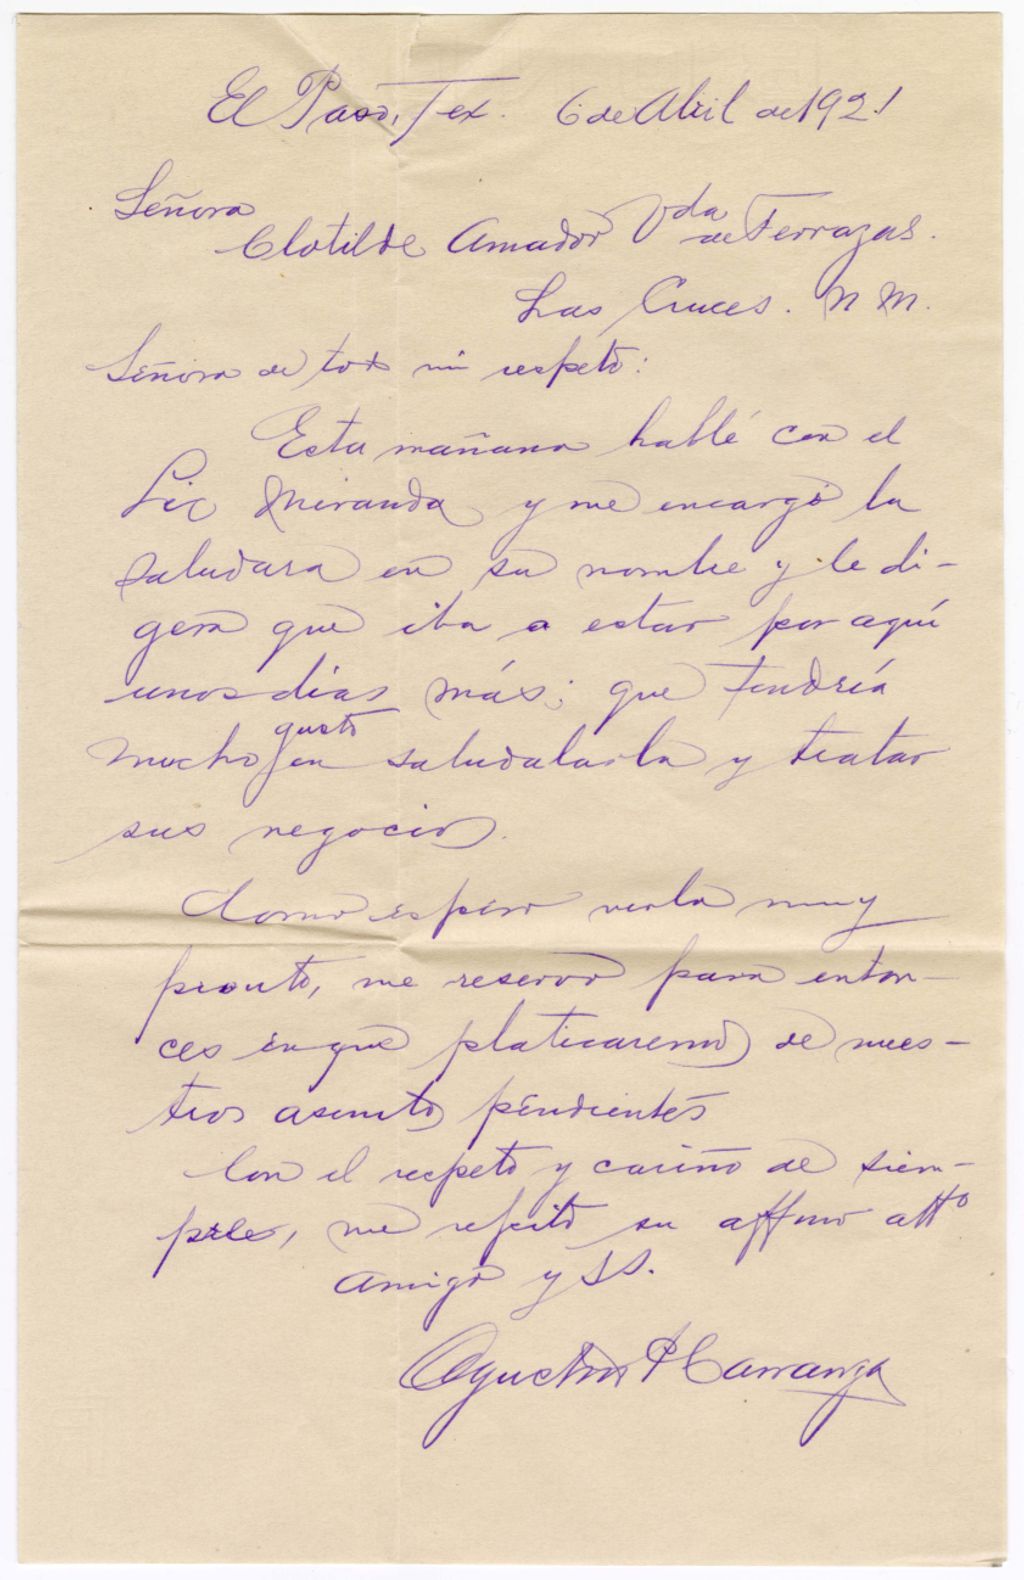 El Paso, Tex. 6 de Abril de 1921
Señora
Clotilde Amador Vda de Terrazas.
Las Cruces. N M.
Señora de todo mi respeto:
Esta mañana hablé con el
Lic Miranda y me encargó la
saludara en su nombre y le di-
gera que iba a estar por aquí
unos dias más; que tendría
mucho gusto en saludalarla y tratar
sus negocios.
Como espero verla muy
pronto, me reservo para enton-
ces en que platicaremos de nues-
tros asuntos pendientes
Con el respeto y cariño de siem-
pre, me repito su affmo atto
amigo y SS.
Agustin P Carranza